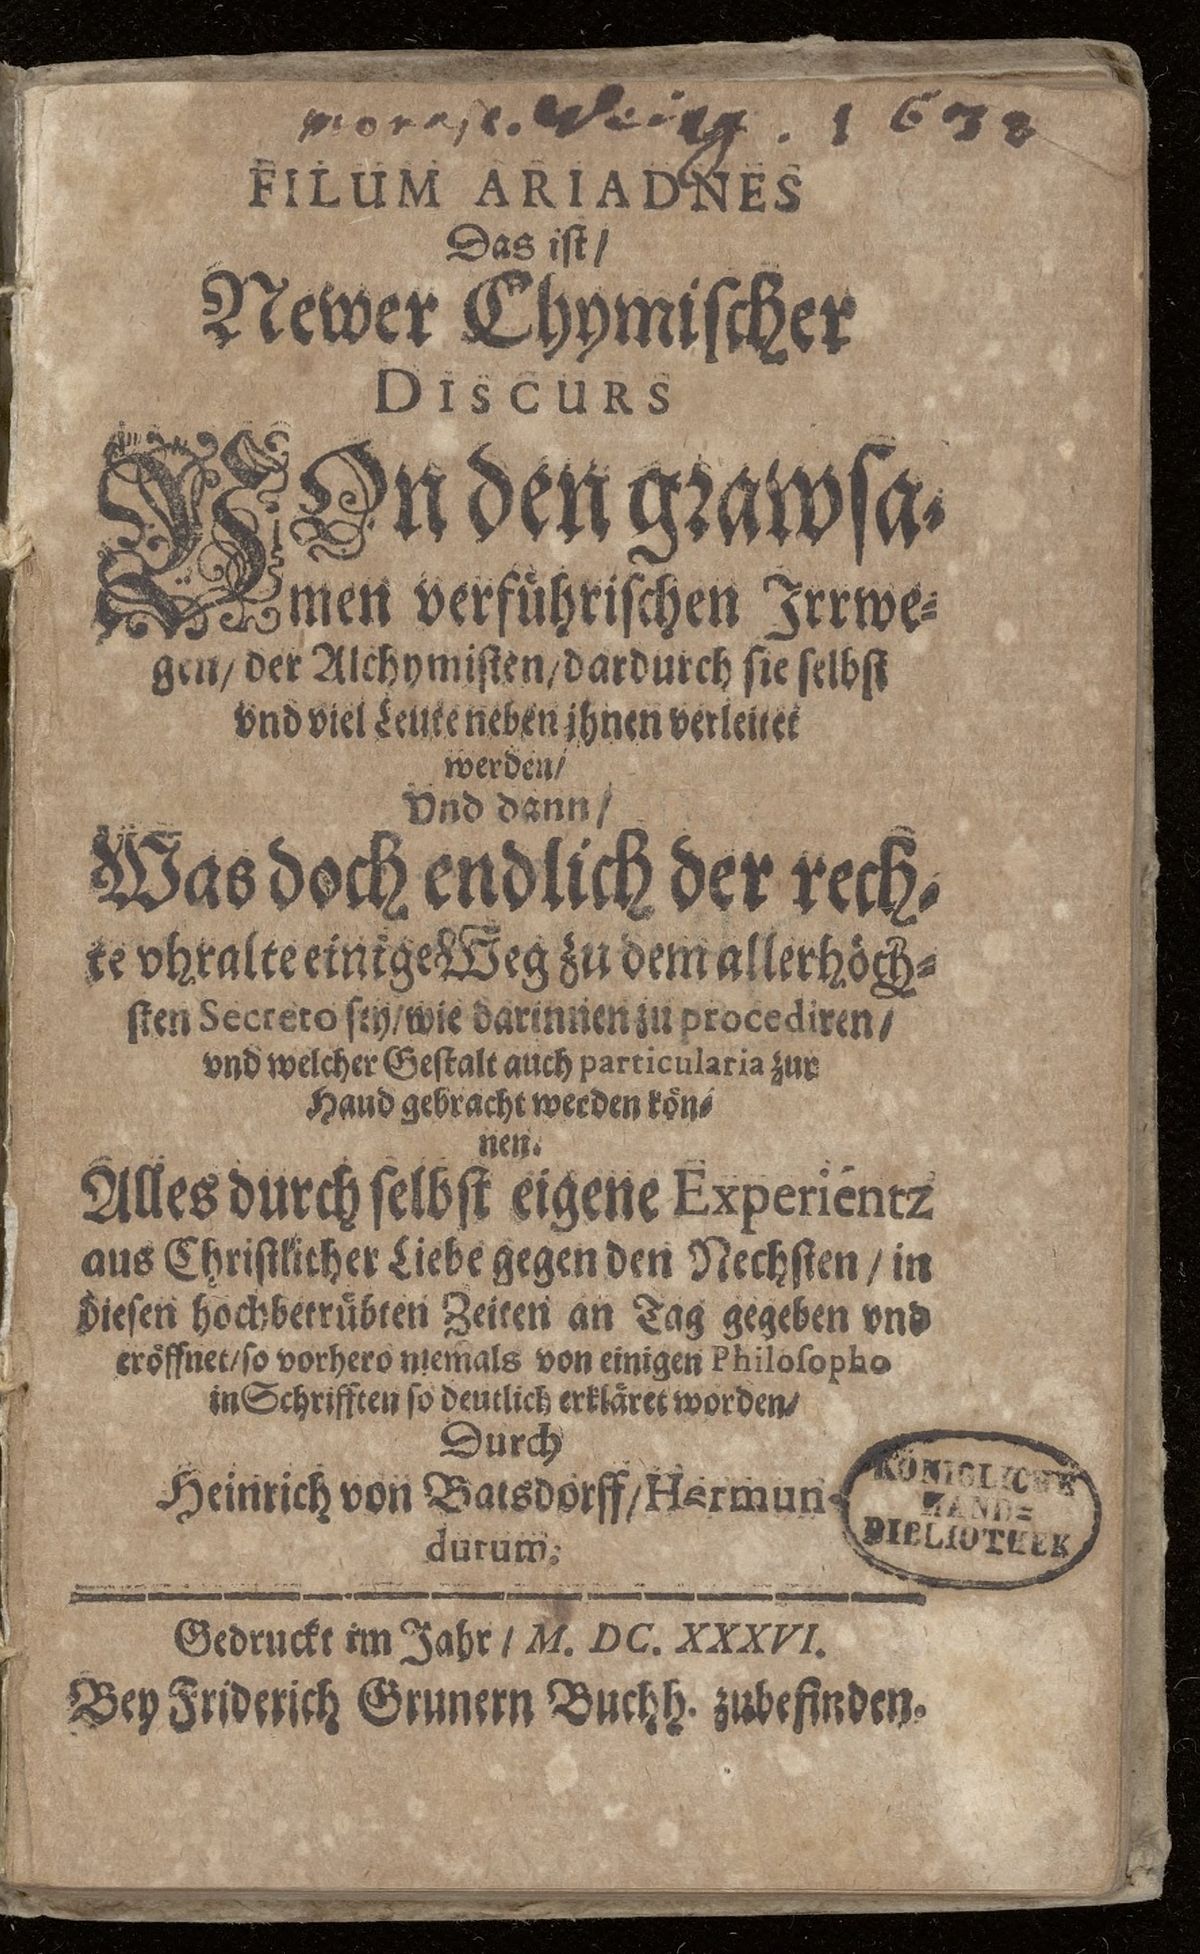 1638
FILUM ARIADNES
Das ist/
Newer Chymischer
DISCURS
VOn den grawsa-
men verführischen Irrwe-
gen/ der Alchymisten/ dardurch sie selbst
vnd viel Leute neben jhnen verleitet
werden/
Vnd dann/
Was doch endlich der rech-
te vhralte einige Weg zu dem allerhöch-
sten Secreto sey/ wie darinnen zu procediren/
vnd welcher Gestalt auch particularia zur
Haud gebracht werden kön-
nen.
Alles durch selbst eigene Experientz
aus Christlicher Liebe gegen den Nechsten / in
diesen hochbetrübten Zeiten an Tag gegeben vnd
eröffnet/ so vorhero niemals von einigen Philosopho
in Schrifften so deutlich erkläret worden/
Durch
Heinrich von Batsdorff/ Hermun-
durum.
KÖNIGLICHE
HAND=
BIBLIOTHEK
Gedruckt im Jahr / M. DC. XXXVI.
Bey Friderich Grunern Buchh. zubefinden.